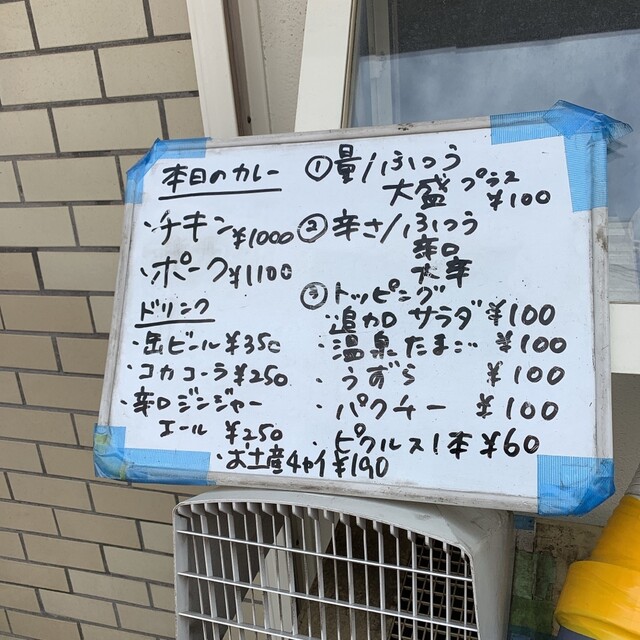 本日のカレー
・チキン ¥1000
・ポーク ¥1100
ドリンク
・缶ビール ¥350
・コカコーラ ¥250
・辛口ジンジャー
エール ¥250
・お土産チャイ ¥190
①量/ふつう
大盛 プラス ¥100
②辛さ/ふつう
辛口
大辛
③トッピング
追加サラダ ¥100
・温泉たまご ¥100
・うずら ¥100
・パクチー ¥100
・ピクルス1本 ¥60